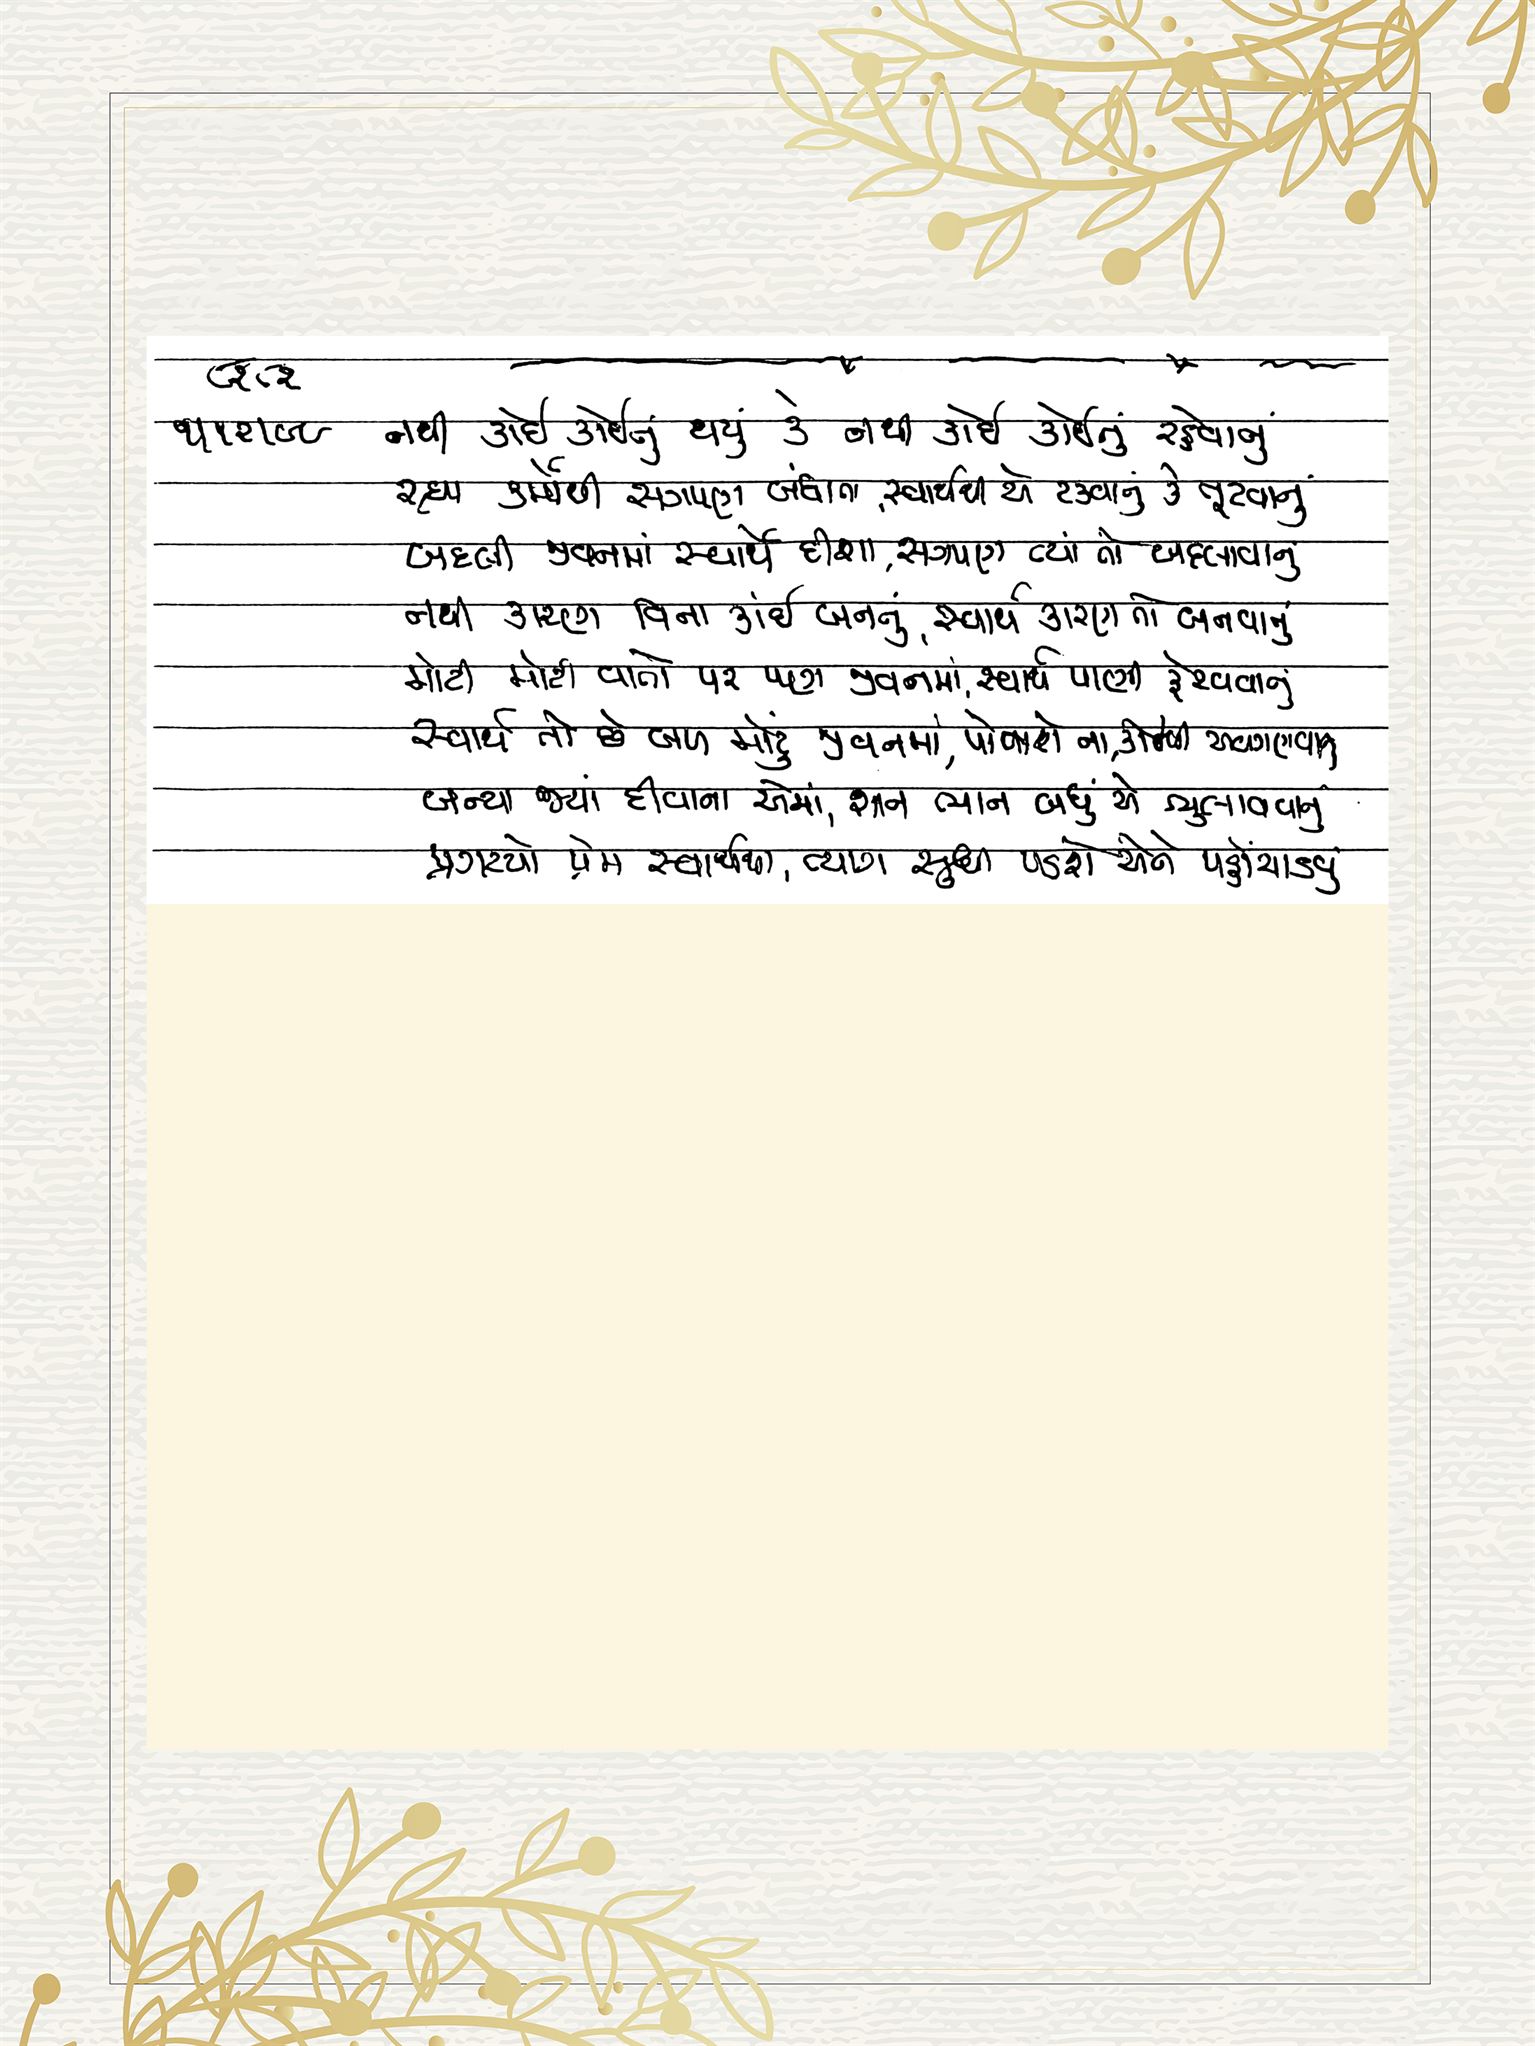 નથી કોઈ કોઈનું થયું કે નથી કોઈ કોઈનું રહેવાનું
કર્મોથી સગપણ બંધાતા, સ્વાર્થથી એ ટકવાનું કે તૂટવાનું
બદલી જીવનમાં સ્વાર્થે દીશા, સગપણ ત્યાં તો બદલાવાનું
નથી કારણ વિના કાંઈ બનનું, સ્વાર્થ કારણ તો બનવાનું
મોટી મોટી વાતો પર પણ જીવનમાં, સ્વાર્થ પાણી ફેરવવાનું
સ્વાર્થ તો છે બળ મોટું જીવનમાં, ના,
બન્યા જ્યાં દીવાના એમાં, ભાન બધું એ ભુલાવવાનું
પ્રગટયો પ્રેમ સ્વાર્થથી, ત્યાગ સુધી પડશે એને પહોંચાડવું